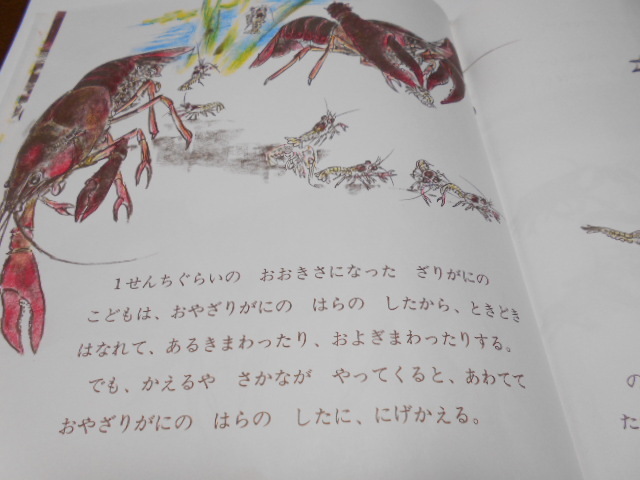 1せんちぐらいの　おおきさになった　ざりがにの
こどもは、おやざりがにの　はらの　したから、ときどき
はなれて、あるきまわったり、およぎまわったりする。
でも、かえるや　さかなが　やってくると、あわてて
おやざりがにの　はらの　したに、にげかえる。
の
た